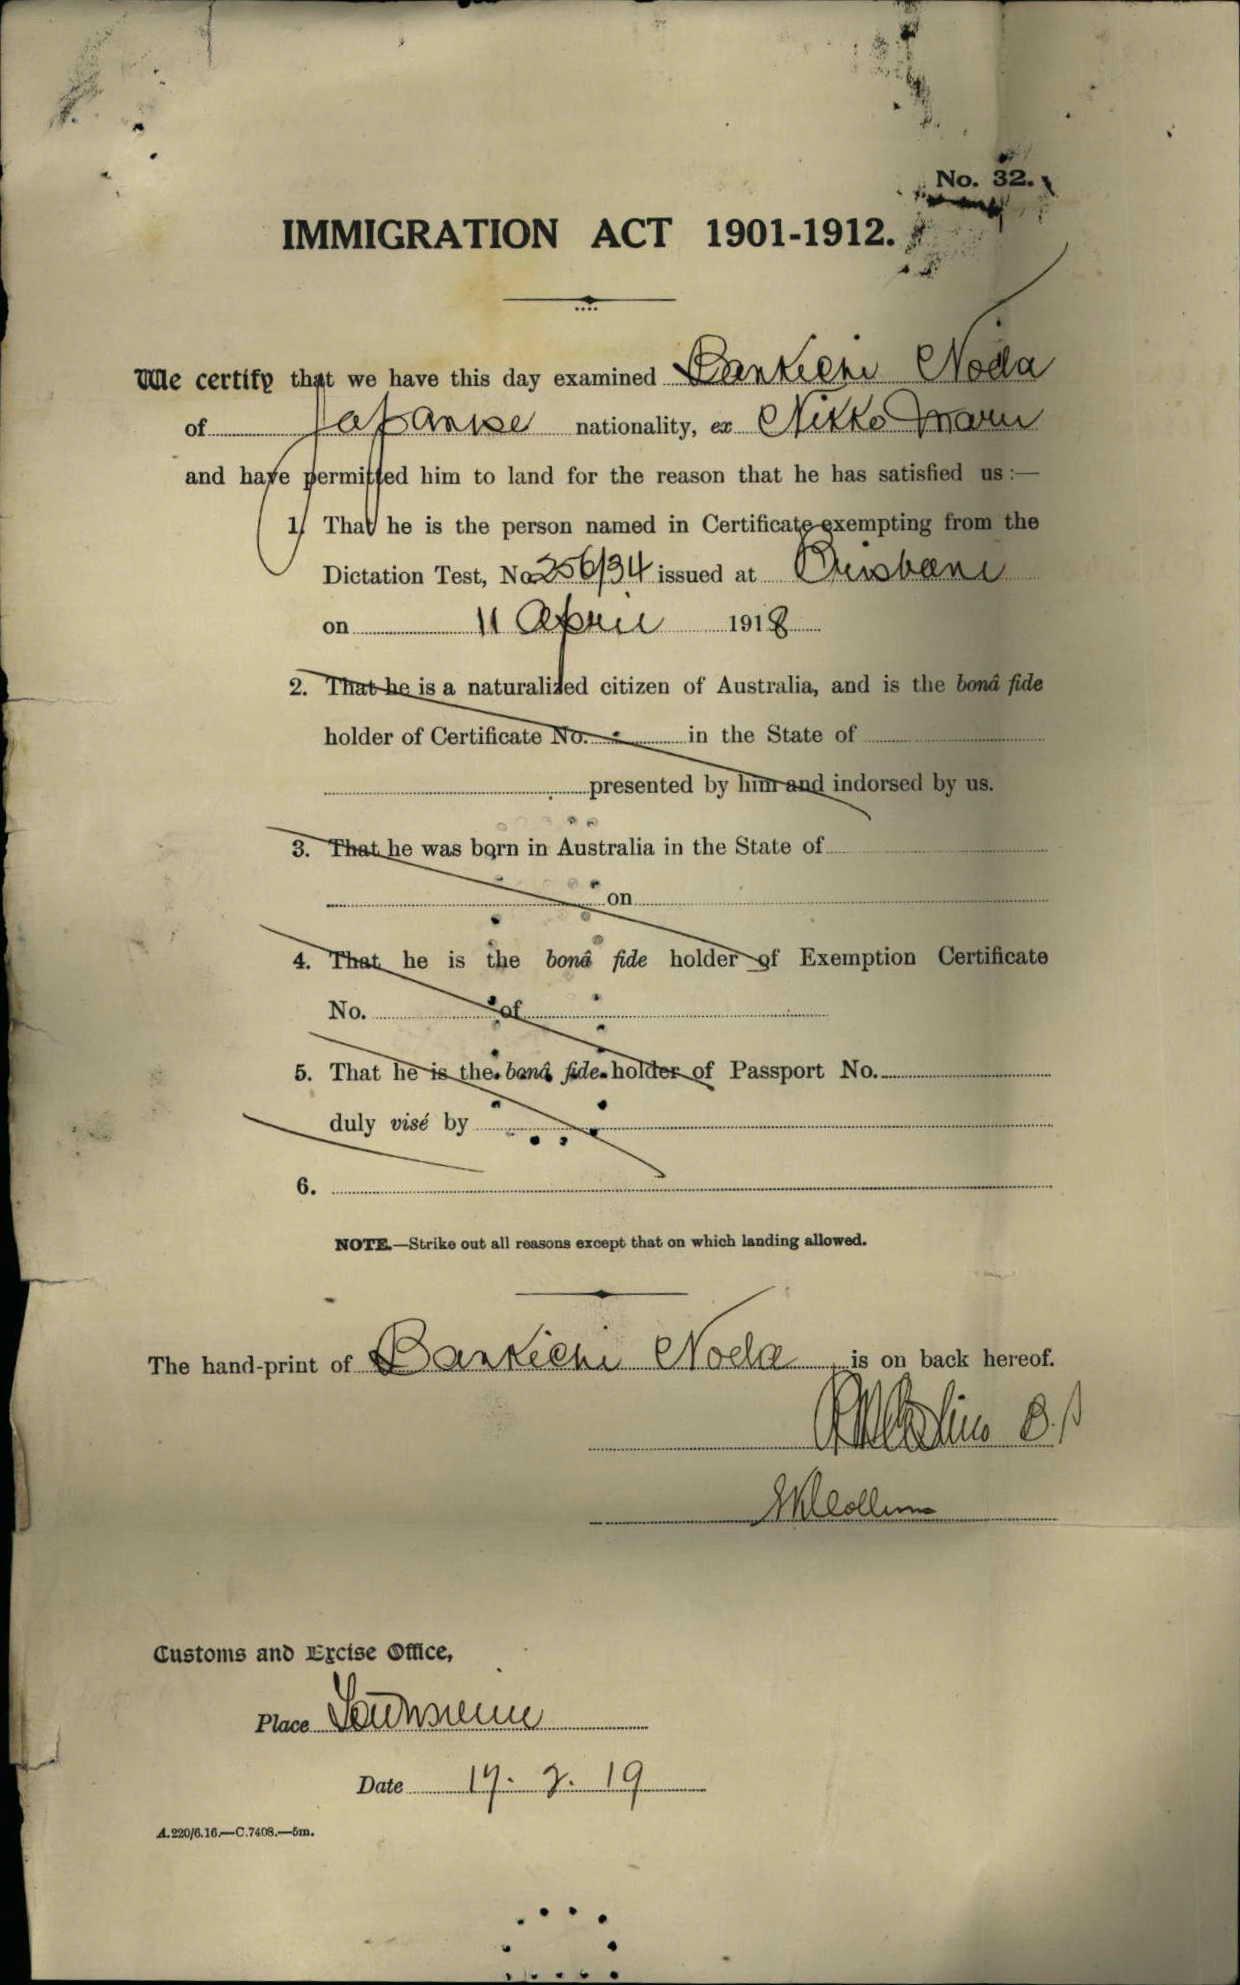 No. 32.
IMMIGRATION ACT 1901-1912.
We certify that we have this day examined Bankichi Noda
of Japanese nationality, ex Nikko Maru
and have permitted him to land for the reason that he has satisfied us :—
1. That he is the person named in Certificate exempting from the
Dictation Test, No. 256/34 issued at Brisbane
on 11 April 1918
2. That he is a naturalized citizen of Australia, and is the bonâ fide
holder of Certificate No. in the State of
presented by him and indorsed by us.
3. That he was born in Australia in the State of
on
4. That he is the bonâ fide holder of Exemption Certificate
No. of
5. That he is the bonâ fide holder of Passport No.
duly visé by
6.
NOTE.—Strike out all reasons except that on which landing allowed.
The hand-print of Bankichi Noda is on back hereof.
Customs and Excise Office,
Place Townsville
Date 17. 2. 19
A.220/6.16.—C.7408.—5m.